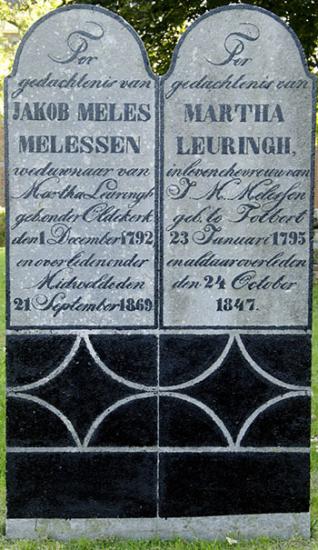 Ter
gedachtenis van
JAKOB MELES
MELESSEN
weduwnaar van
Martha Leuringh
geb. onder Oldekerk
den 1 December 1792
en overleden onder
Midwolde den
21 September 1869
Ter
gedachtenis van
MARTHA
LEURINGH,
in leven ehevrouw van
J. M. Melessen
geb. te Tolbert
23 Januari 1795
en aldaar overleden
den 24 October
1847.